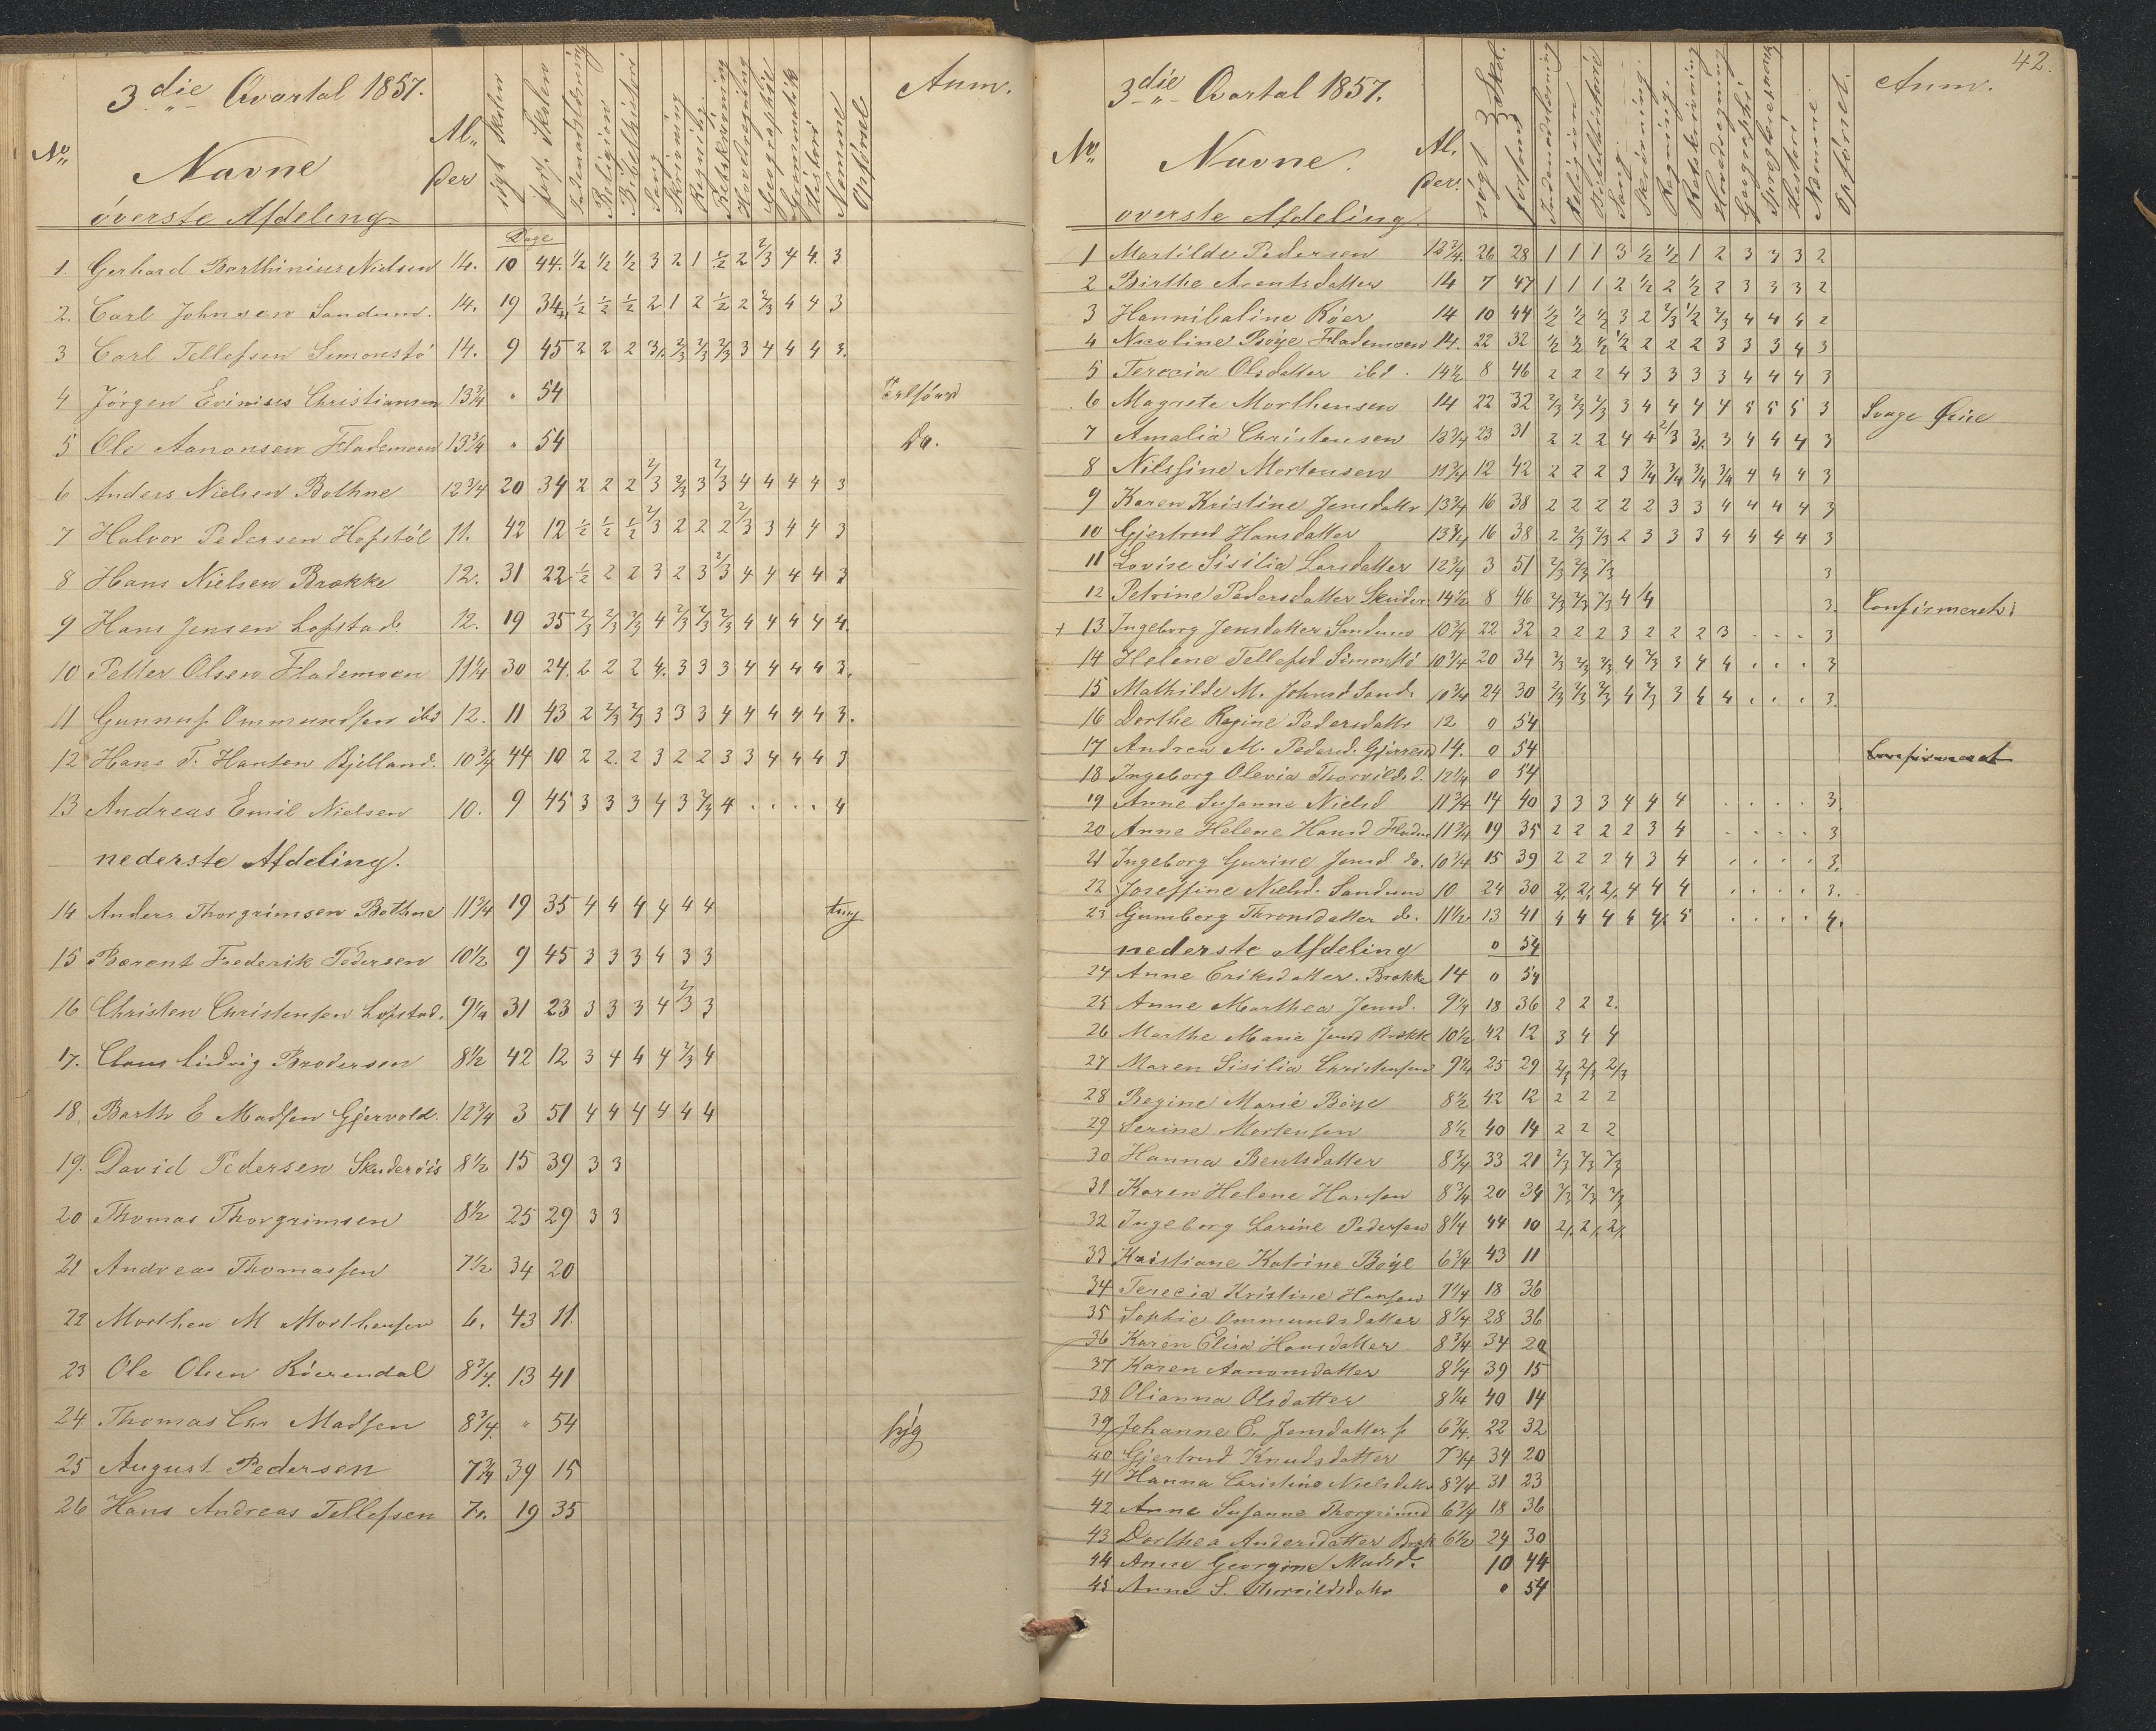 3die Qvartal 1857.
No
Navne
Al-
der
søgt Skolen
fors. Skolen
Indenadslæsning
Religion
Bibelhistori
Sang
Skrivning
Regning
Retskrivning
Hovedregning
Geographie
Grammatik
Histori
Nemme
Opførsel
Anm.
överste Afdeling
Dage
1. Gerhard Barthinius Nielsen 14. 10 44. ½ ½ ½ 3 2 1 ½ 2 2/3 4 4. 3
2. Carl Johnsen Sandum. 14. 19 34 ½ ½ ½ 2 1 2 ½ 2 2/3 4 4 3
3 Carl Tellefsen Simonstö 14. 9 45 2 2 2 3. 2/3 2/3 2/3 3 4 4 4 3.
4 Jörgen Christiansen 13¾ " 54
5 Ole Aanonsen Flademoen 13¾ " 54 Do.
6 Anders Nielsen Bothne 12¾ 20 34 2 2 2 2/3 2/3 3 2/3 4 4 4 4 3
7 Halvor Pedersen Hofstöl 11. 42 12 ½ ½ ½ 2/3 2 2 2 2/3 3 4 4 3
8 Hans Nielsen Brække 12. 31 22 ½ 2 2 3 2 3 2/3 4 4 4 4 3
9 Hans Jensen Lofstad. 12. 19 35 2/3 2/3 2/3 4 2/3 2/3 2/3 4 4 4 4 4.
10 Petter Olsen Flademoen 11¼ 30 24. 2 2 2 4. 3 3 3 4 4 4 4 3.
11 Gunnuf Ommundsen ibd 12. 11 43 2 2/3 2/3 3 3 3 4 4 4 4 4 3.
12 Hans T. Hansen Bjelland. 10¾ 44 10 2 2. 2 3 2 2 3 3 4 4 4 3
13 Andreas Emil Nielsen 10. 9 45 3 3 3 4 3 3/4 4 . . . . 4
nederste Afdeling.
14 Anders Thorgrimsen Bothne 11¾ 19 35 4 4 4 4 4 4 tung
15 Bærent Frederik Pedersen 10½ 9 45 3 3 3 4 3 3
16 Christen Christensen Lofstad. 9¼ 31 23 3 3 3 4 2/3 3
17. Claus Ludvig Brodersen 8½ 42 12 3 4 4 4 2/3 4
18. Barth E Madsen Gjervold. 12¾ 3 51 4 4 4 4 4 4
19. David Pedersen Skuderöis 8½ 15 39 3 3
20 Thomas Thorgrimsen 8½ 25 29 3 3
21 Andreas Thomassen 7½ 34 20
22 Morthen M Morthensen 6. 43 11.
23 Ole Olsen Röerendal 8¾. 13 41
24 Thomas Chr Madsen 8¾. " 54 syg
25 August Pedersen 7¾ 39 15
26 Hans Andreas Tellefsen 7. 19 35
42.
3die Qvartal 1857.
No
Navne.
Al.
der.
søgt Skol.
forsømt
Indenadslæsning
Religion
Bibelhistorie
Sang.
Skrivning.
Regning.
Retskrivning
Hovedregning
Geographi
Sproglære
Histori
Nemme.
Opförsel.
Anm.
överste Afdeling
1 Martilde Pedersen 13¾. 26 28 1 1 1 3 ½ ½ 1 2 3 3 3 2
2 Birthe Arentsdatter 14 7 47 1 1 1 2 ½ 2 ½ 2 3 3 3 2
3 Hannibaline Röer 14 10 44 ½ ½ ½ 3 2 2/3 ½ 2/3 4 4 4 2
4 Nicoline Böye Flademoen 14. 22 32 ½ ½ ½ ½ 2 2 2 3 3 3 4 3
5 Terecia Olsdatter ibd. 14½ 8 46 2 2 2 4 3 3 3 3 4 4 4 3
6 Magrete Morthensen 14 22 32 2/3 2/3 2/3 3 4 4 4 4 5 5 5 3 Svage Öine
7 Amalia Christensen 13¾ 23 31 2 2 2 4 4 2/3 3. 3 4 4 4 3
8 Nilssine Mortensen 11¾ 12 42 2 2 2 3 ¾ ¾ ¾ ¾ 4 4 4 3
9 Karen Kristine Jensdattr 13¾ 16 38 2 2 2 2 2 3 3 4 4 4 4 3
10 Gjertrud Hansdatter 13¾ 16 38 2 2/3 2/3 2 3 3 3 4 4 4 4 3
11 Lovise Sisilia Larsdatter 12¾ 3 51 2/3 2/3 2/3 3
12 Petrine Pedersdatter Skuder 14½ 8 46 2/3 2/3 2/3 4 4 3. Confirmeret
+ 13 Ingeborg Jensdatter Sandum 10¾ 22 32 2 2 2 3 2 2 2 3 . . . 3
14 Helene Tellefsd Simonstö 10¾ 20 34 2/3 2/3 2/3 4 2/3 3 4 4 . . . 3
15 Mathilde M. Johnsd Sand. 10¾ 24 30 2/3 2/3 2/3 4 2/3 3 4 4 . . . 3.
16 Dorthe Regine Pedersdattr 12 0 54
17 Andrea M. Pedersd. 14. 0 54 Confirmeret
18 Ingeborg Olevia Thorvildsd. 12¼ 0 54
19 Anne Susanne Nielsd 11¾ 14 40 3 3 3 4 4 4 . . . . 3.
20 Anne Helene Hansd Fladm 11¾ 19 35 2 2 2 2 3 4 . . . . 3
21 Ingeborg Gurine Jensd do. 10¾ 15 39 2 2 2 4 3 4 . . . . 3.
22 Joseffine Nielsd. Sandum 10 24 30 2. 2. 2. 4 4 4 . . . . 3.
23 Gumborg Thronsdatter do. 11½ 13 41 4 4 4 4 4. 5 . . . . 4.
nederste Afdeling 0 54
24 Anne Eriksdatter. Brække 14 0 54
25 Anne Marthea Jensd. 9¼ 18 36 2 2 2.
26 Marthe Maria Jensd Brække 10½ 42 12 3 4 4
27 Maren Sisilia Christensen 9¼ 25 29 2/3 2/3 2/3
28 Regine Marie Böye 8½ 42 12 2 2 2
29 Serine Mortensen 8½ 40 14 2 2 2
30 Hanna Bentsdatter 8¾ 33 21 2/3 2/3 2/3
31 Karen Helene Hansen 8¾ 20 34 2/3 2/3 2/3
32 Ingeborg Larine Pedersen 8¼ 44 10 2. 2. 2.
33 Kristiane Katrine Böye 6¾ 43 11
34 Terecia Kristine Hansen 7¼ 18 36
35 Sophie Ommundsdatter 8¼ 28 36
36 Karen Elisa Hansdatter 8¾ 34 20
37 Karen Aanonsdatter 8¼ 39 15
38 Olianna Olsdatter 8¼ 40 14
39 Johanne E. Jensdatter 6¾. 22 32
40 Gjertrud Knudsdatter 7¾ 34 20
41 Hanna Christine Nielsdattr 8¾ 31 23
42 Anne Susanne Thorgrimsd 6¾ 18 36
43 Dorthea Andersdatter Bræk 6½ 24 30
44 Anne Georgine Madsd. 10 44
45 Anne S. Thorvildsdattr 0 54